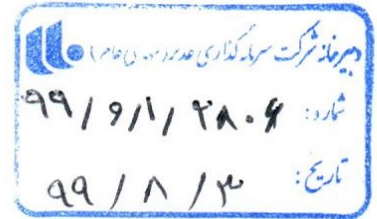 دبیرخانه شرکت سرمایه گذاری غدیر (سهامی عام)
شماره: ۹۹/۹/۱/۲۸۰۶
تاریخ: ۹۹/۸/۳